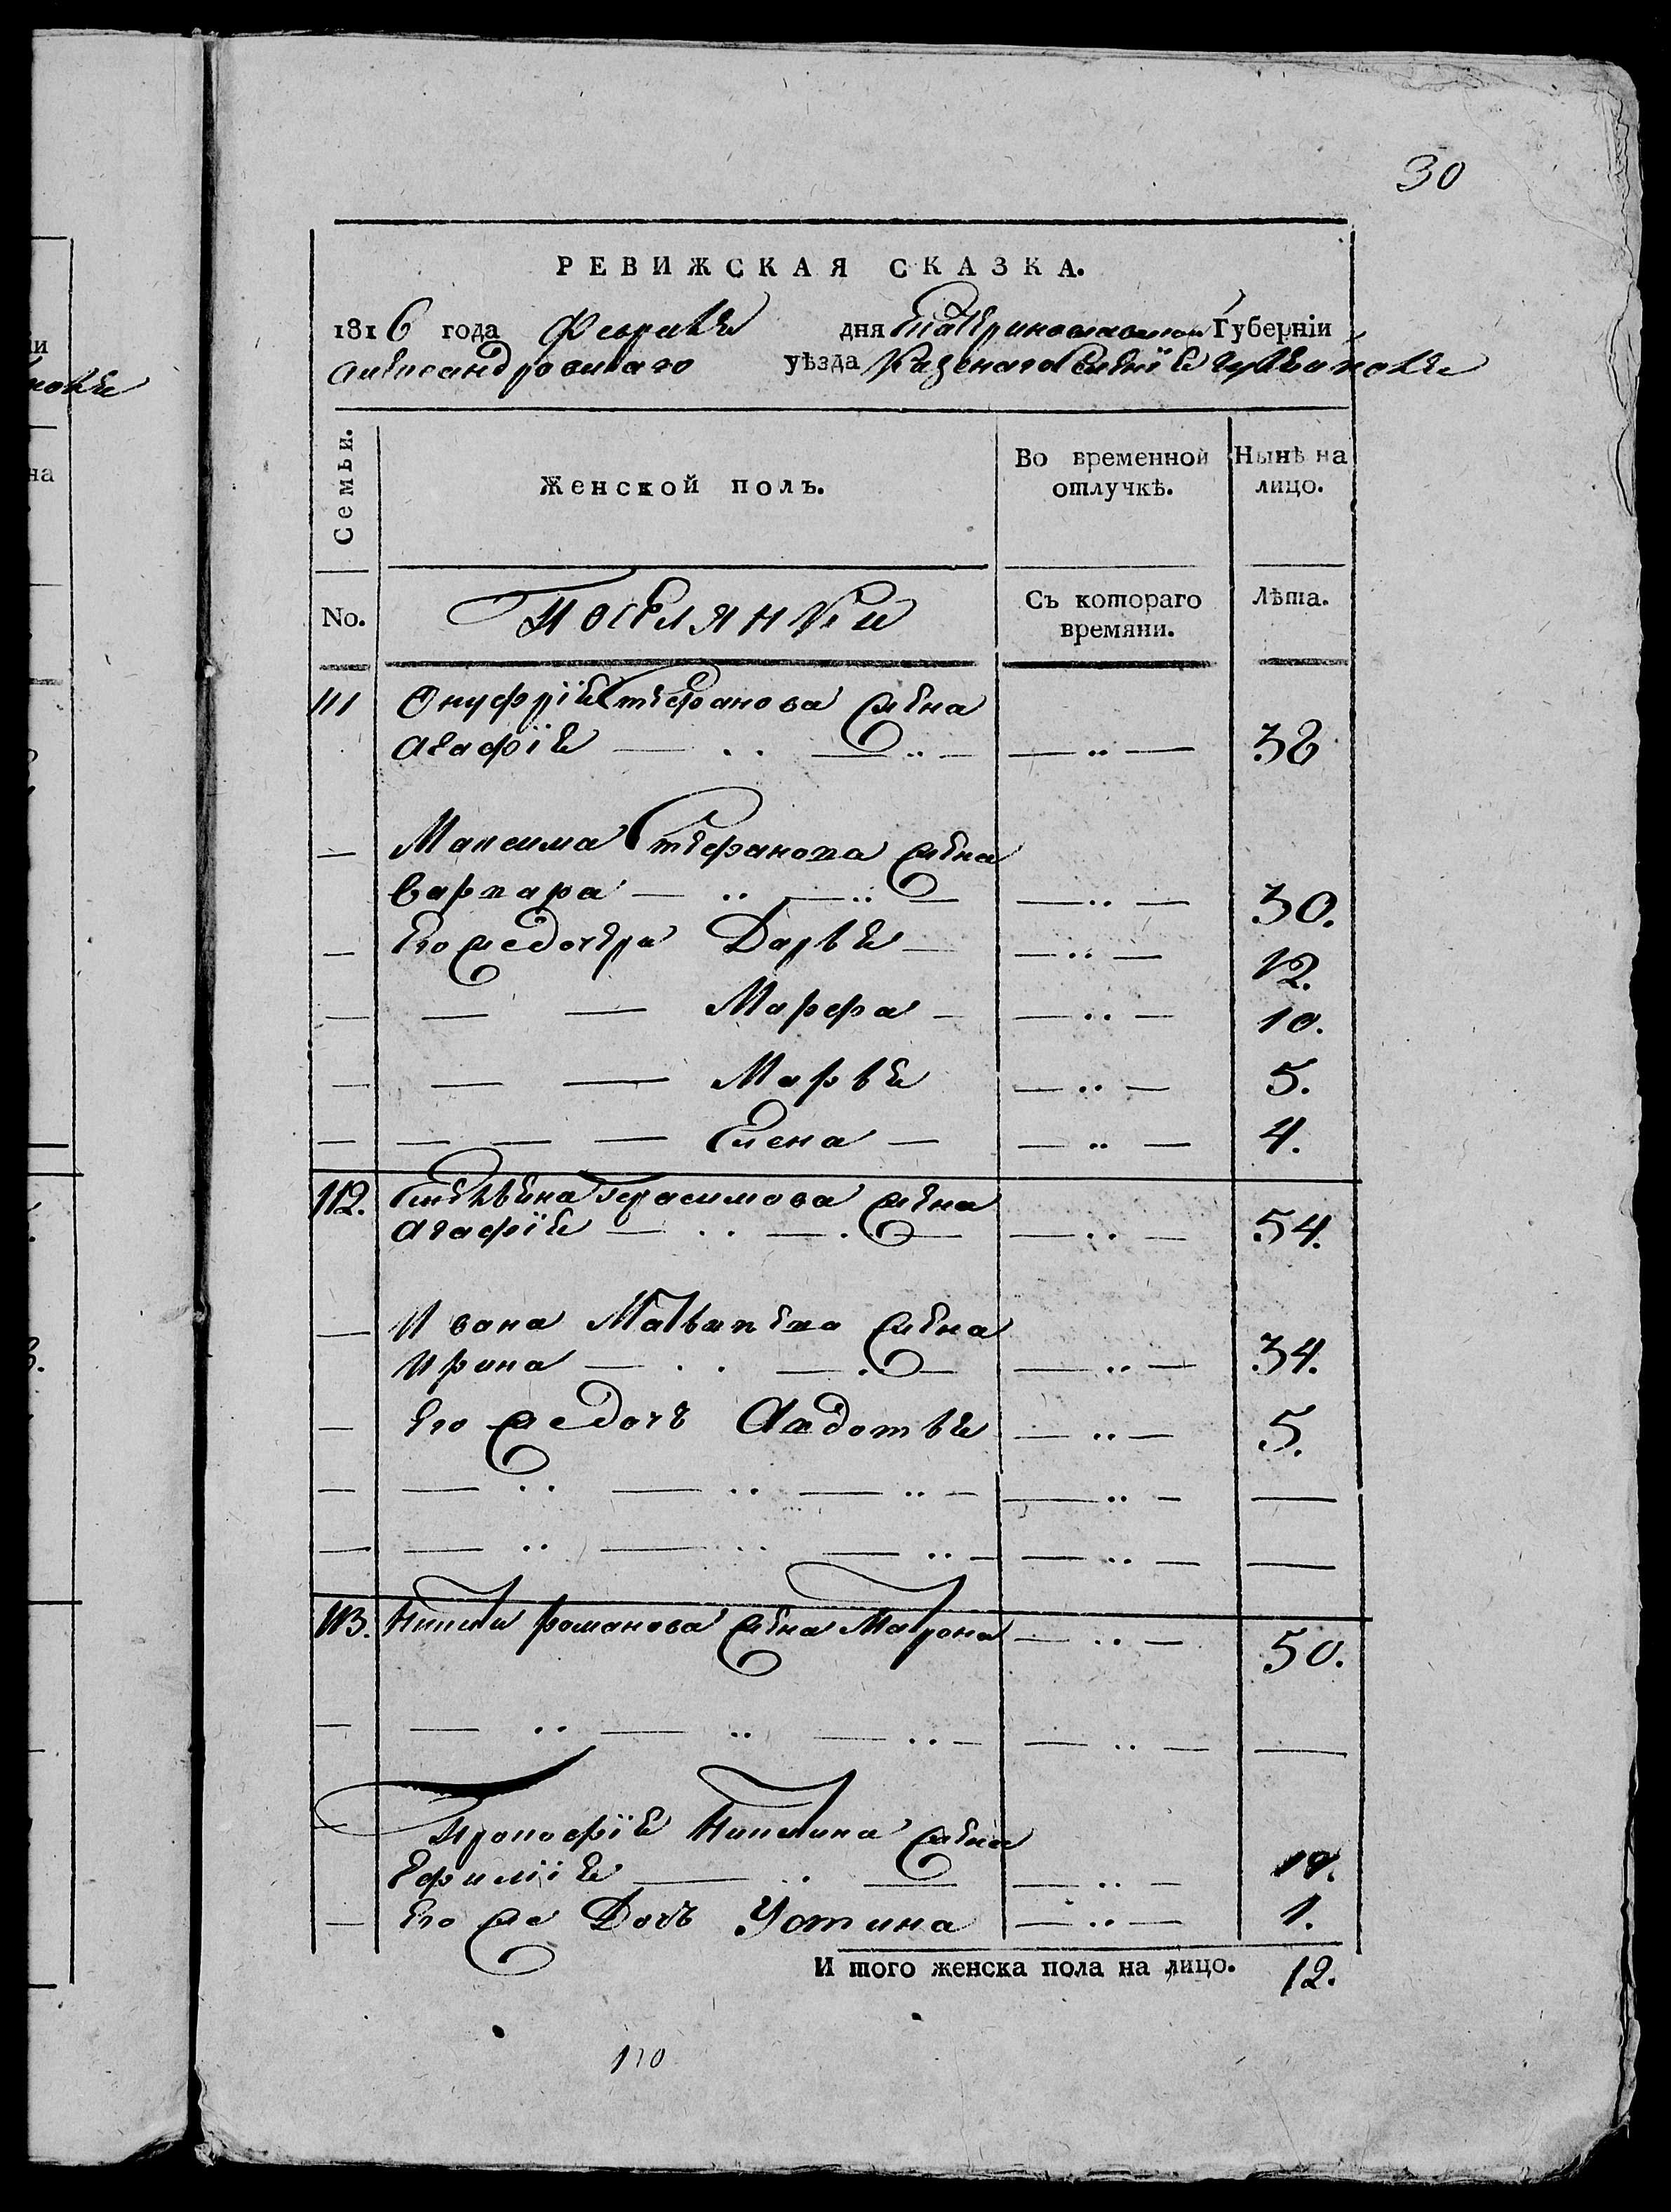 30
РЕВИЖСКАЯ СКАЗКА.
1816 года Февраля дня Екатеринославской Губерніи
Александровскаго уѣзда Казенаго Селенїя
Семьи.
Женской полъ.
Во временной отлучкѣ.
Нынѣ на лицо.
No.
Поселянки
Съ котораго времяни.
Лѣта.
111 Онуфрїя Стефанова жена
Агафїя — .. — .. — — .. — 38
— Максима Стефанова жена
варвара — .. — .. — — .. — 30.
— Его же дочери Дарья — — .. — 12.
— — — Марфа — — .. — 10.
— — — Марья — .. — 5.
— — — — Елена — — .. — 4.
112. Герасимова жена
Агафїя — .. — . — — .. — 54.
— Ивана Матвѣева жена
Ирина — .. — . — — .. — 34.
— Его же дочь Авдотья — .. — 5.
— — .. — .. — .. — — .. — —
— — .. — .. — .. — — .. — —
113. Никиты романова жена Матрона — .. — 50.
— — .. — .. — .. — — .. — —
— Прокофїя Никитина жена
Ефимїя — . — — .. — 19.
— Его же Дочь Устина — .. — 1.
И того женска пола на лицо. 12.
110